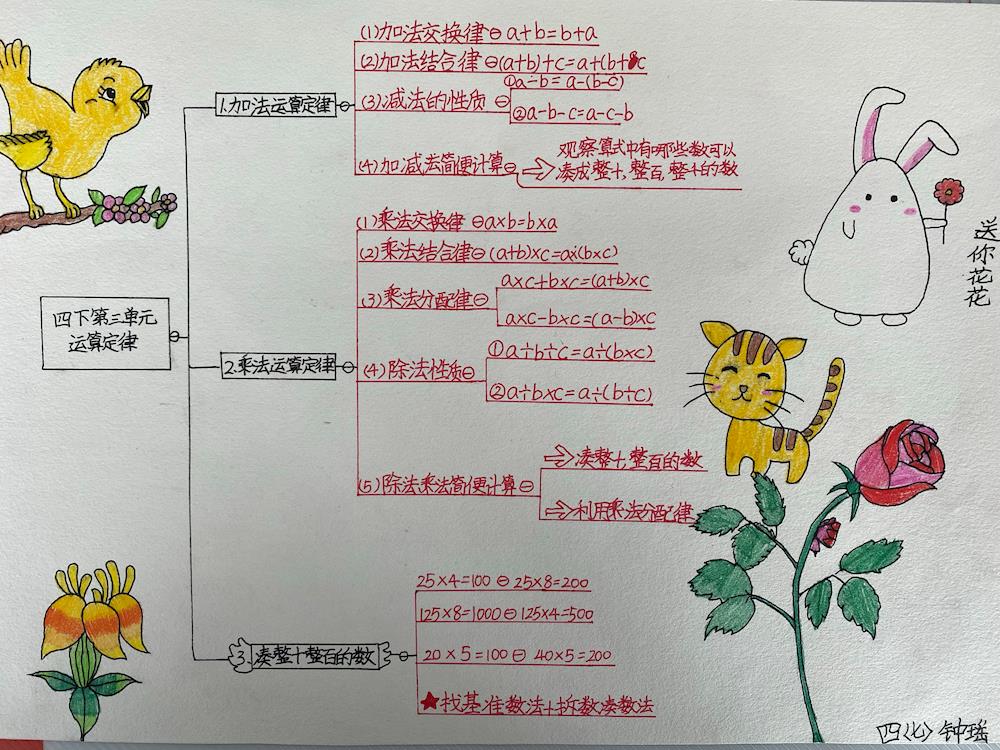 (1)加法交换律⊖a+b=b+a
(2)加法结合律⊖(a+b)+c=a+(b+c
1.加法运算定律
(3)减法的性质⊖
①a-b=a-(b-c)
②a-b-c=a-c-b
(4)加减法简便计算⊖
观察算式中有哪些数可以
凑成整十,整百,整千的数
(1)乘法交换律⊖a×b=b×a
(2)乘法结合律⊖(a+b)×c=a×(b×c)
(3)乘法分配律⊖
a×c+b×c=(a+b)×c
a×c-b×c=(a-b)×c
四下第三单元
运算定律
2.乘法运算定律
(4)除法性质⊖
①a÷b÷c=a÷(b×c)
②a÷b×c=a÷(b÷c)
(5)除法乘法简便计算⊖
⇒凑整十,整百的数
⇒利用乘法分配律
3.凑整十整百的数
25×4=100⊖25×8=200
125×8=1000⊖125×4=500
20×5=100⊖40×5=200
★找基准数法+拆数凑数法
送你花花
四〈七〉钟瑶